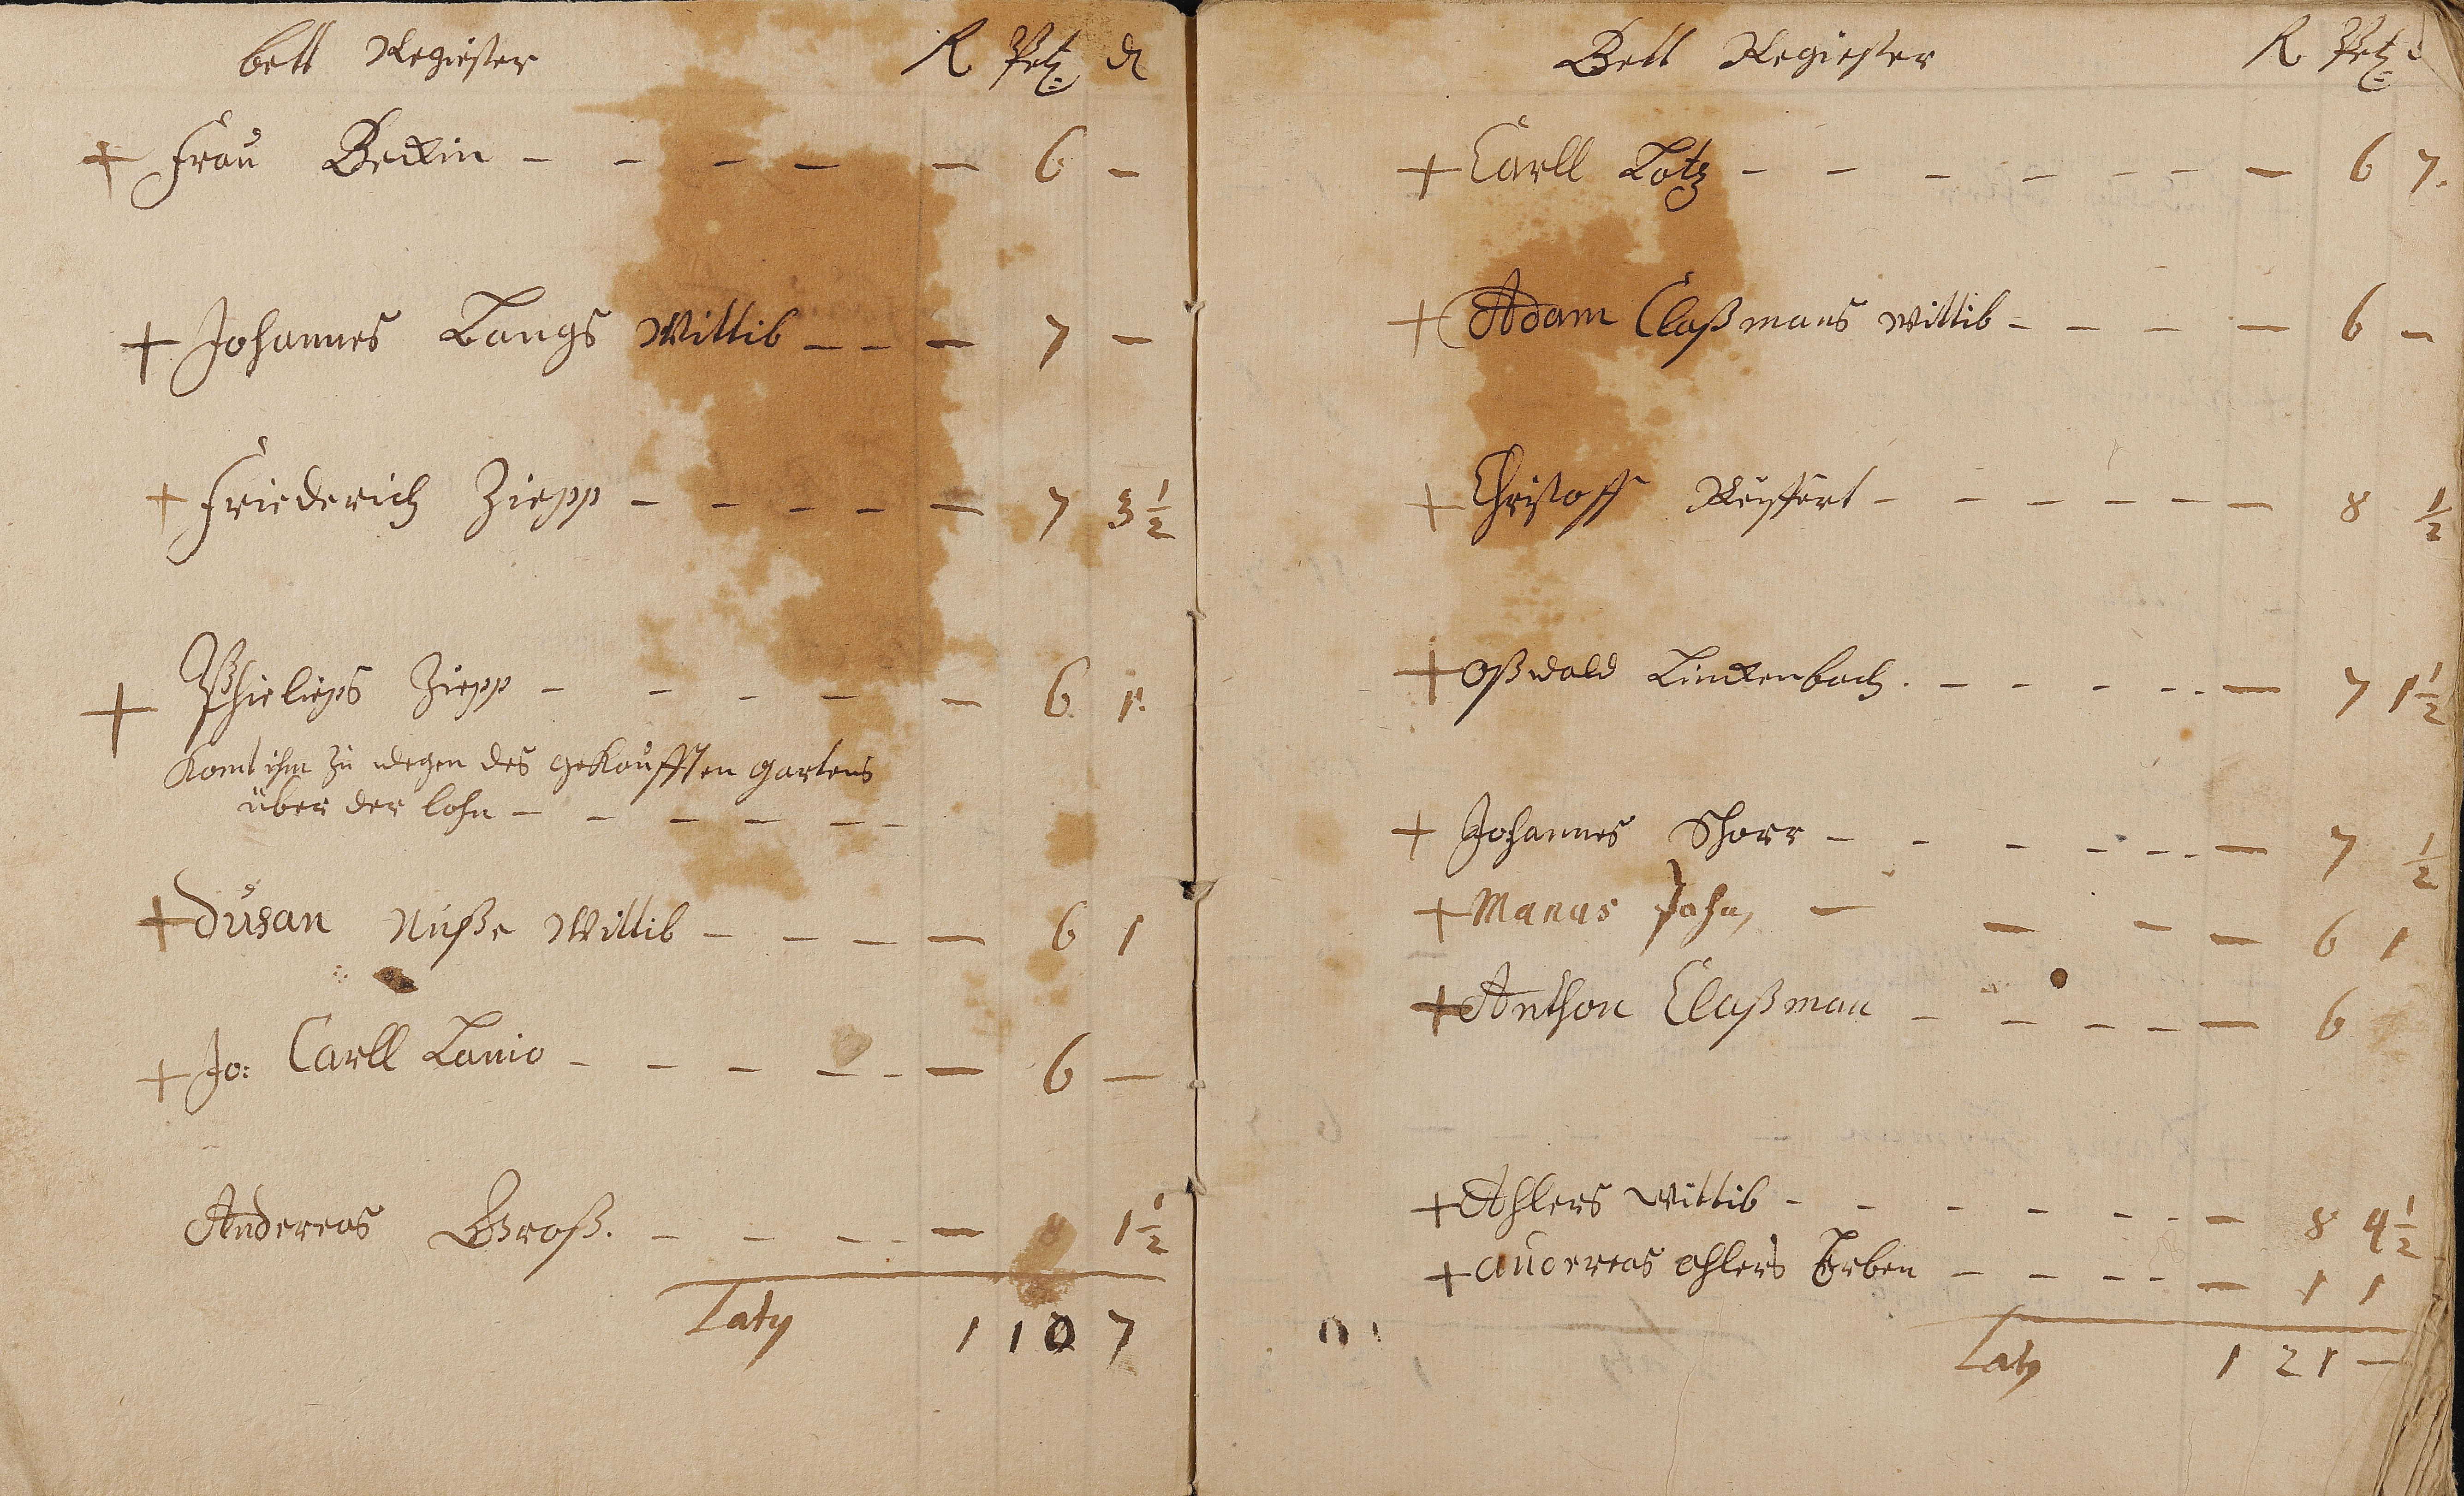 bett Regiester R Petz: d
+ Frau Beckin - - - - - 6 -
+ Johannes Langs Wittib - - - 7 -
+ Friederich Ziepp - - - - - 7 3 1/2
+ Philieps Ziepp - - - - - 6 1.
Komt ihm zu wegen des gekaufften gartens
über der lohn - - - - - -
+ Susan Nuße Wittib - - - - 6 1
+ Jo: Carll Lanio - - - - - - 6 -
Andereas Groß. - - - - - 8 1 1/2
Laty 1 10 7
Bett Regiester R Petz:
+ Carll Lotz - - - - - - - - 6 7.
+ Adam Claßmans wittib - - - - 6 -
+ Christoff Reyffert - - - - - - 8 1/2
+ Oßwald Linckenbach. - - - - - - 7 1 1/2
+ Johannes Schorr - - - - - - - 7 1/2
+ Manus John, - - - - 6 1
+ Anthon Claßman - - - - - 6
+ Ahlers wittib - - - - - - - 8 4 1/2
+ andereas ahlers Erben - - - - - 1 1
Laty 1 21 -